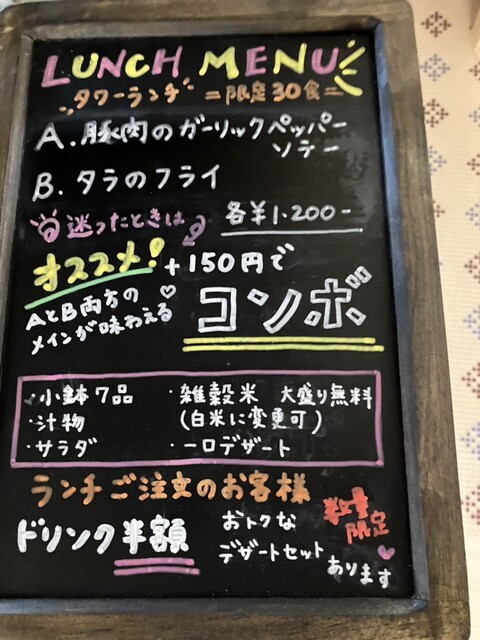 LUNCH MENU
タワーランチ =限定30食=
A.豚肉のガーリックペッパー
ソテー
B.タラのフライ
迷ったときは 各¥1.200-
オススメ! +150円で
AとB両方の
メインが味わえる♡ コンボ
・小鉢7品 ・雑穀米 大盛り無料
・汁物 (白米に変更可)
・サラダ ・一口デザート
ランチご注文のお客様
ドリンク半額 おトクな 数量
限定
デザートセット
あります